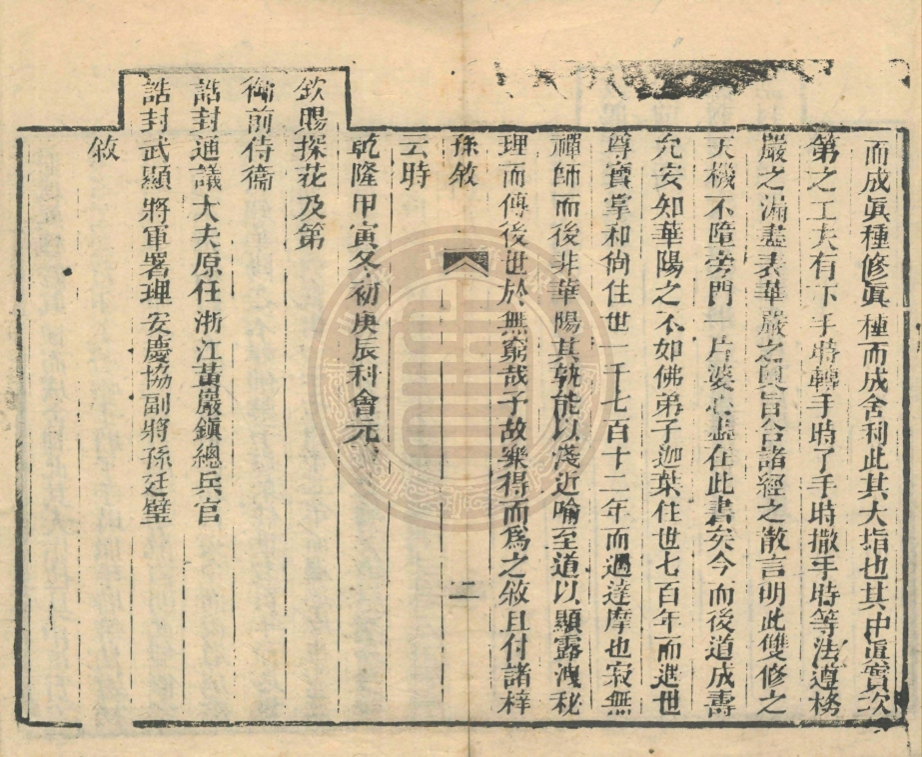 而成眞種修眞種而成舍利此其大㫖也其中眞實次
第之工夫有下手時轉手時了手時撒手時等法遵楞
嚴之漏盡表華嚴之奧旨合諸經之散言明此雙修之
天機不墮旁門一片婆心盡在此書矣今而後道成壽
允安知華陽之不如佛弟子迦葉住世七百年而遇世
尊寶掌和尙住世一千七百十二年而遇達摩也寂無
禪師而後非華陽其孰能以淺近喻至道以顯露洩秘
理而傳後世於無窮哉予故樂得而爲之敘且付諸梓
孫敘
二
云時
乾隆甲寅冬初庚辰科會元
欽賜探花及第
御前侍衞
誥封通議大夫原任浙江黃巖鎮總兵官
誥封武顯將軍署理安慶協副將孫廷璧
敘